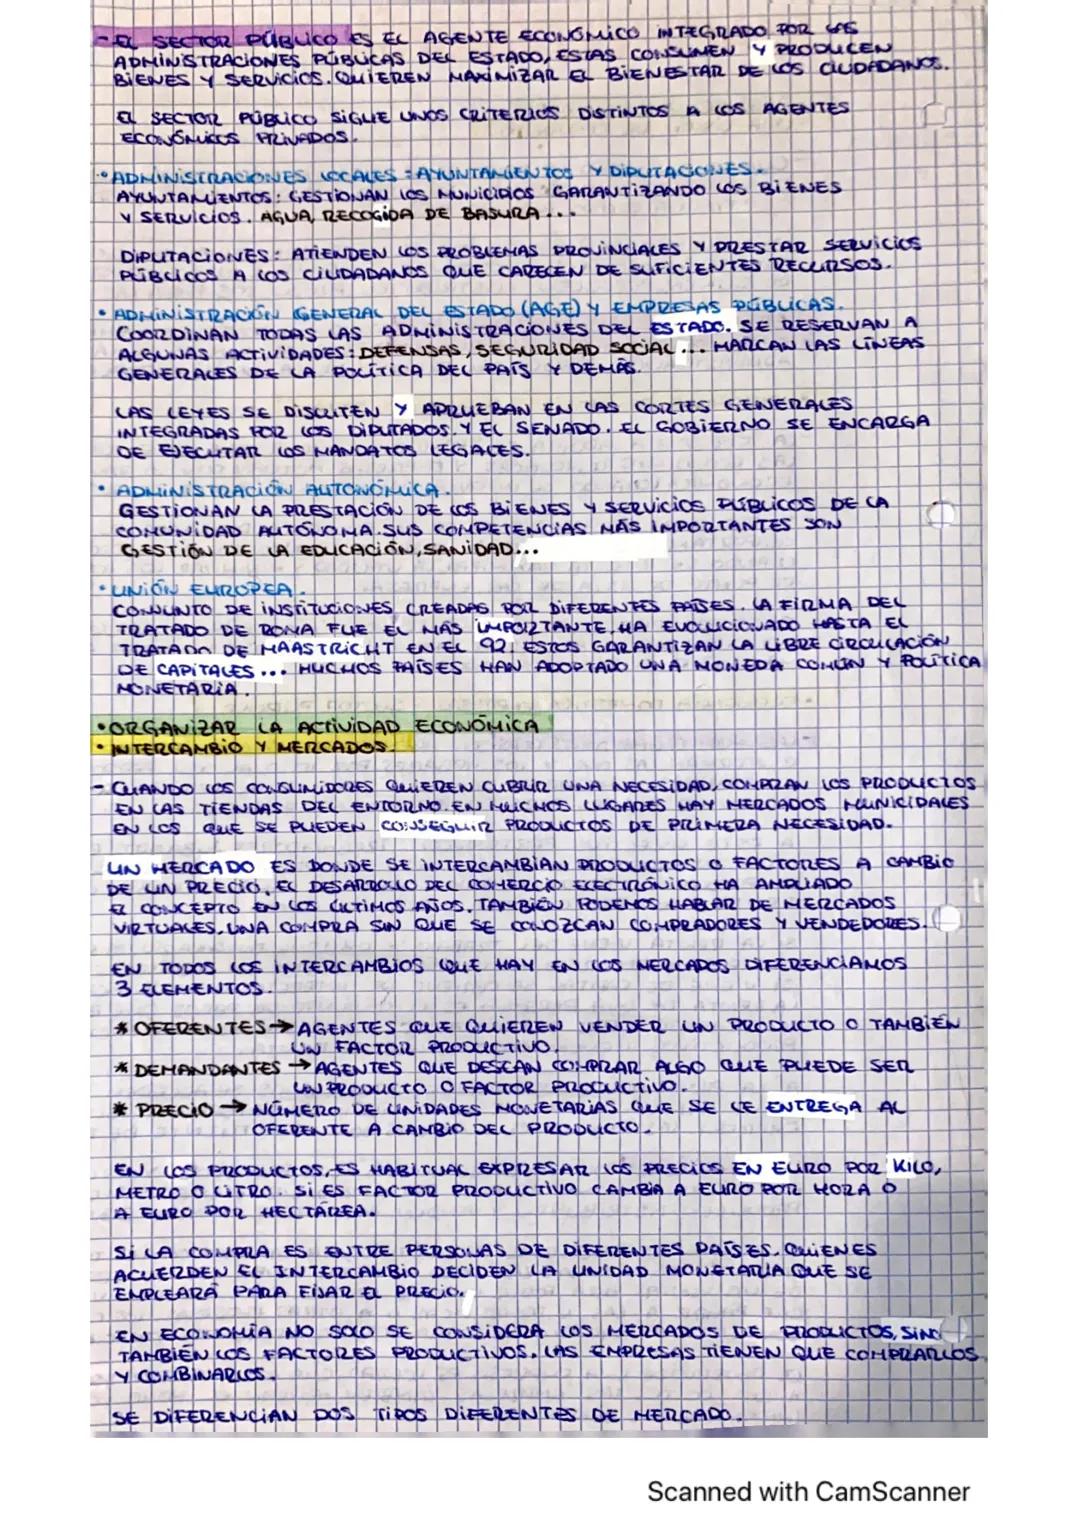 - EL SECTOR PÚBLICO ES EL AGENTE ECONÓMICO INTEGRADO POR LAS
ADMINISTRACIONES PÚBLICAS DEL ESTADO, ESTAS CONSUMEN Y PRODUCEN
BIENES Y SERVICIOS. QUIEREN MAXIMIZAR EL BIENESTAR DE LOS CIUDADANOS.
EL SECTOR PÚBLICO SIGUE UNOS CRITERIOS DISTINTOS A LOS AGENTES
ECONÓMICOS PRIVADOS.
• ADMINISTRACIONES LOCALES: AYUNTAMIENTOS Y DIPUTACIONES.
AYUNTAMIENTOS: GESTIONAN LOS MUNICIPIOS GARANTIZANDO LOS BIENES
Y SERVICIOS. AGUA, RECOGIDA DE BASURA...
DIPUTACIONES: ATIENDEN LOS PROBLEMAS PROVINCIALES Y PRESTAR SERVICIOS
PÚBLICOS A LOS CIUDADANOS QUE CARECEN DE SUFICIENTES RECURSOS.
• ADMINISTRACIÓN GENERAL DEL ESTADO (AGE) Y EMPRESAS PÚBLICAS.
COORDINAN TODAS LAS ADMINISTRACIONES DEL ESTADO. SE RESERVAN A
ALGUNAS ACTIVIDADES: DEFENSAS, SEGURIDAD SOCIAL... MARCAN LAS LÍNEAS
GENERALES DE LA POLÍTICA DEL PAÍS Y DEMÁS.
LAS LEYES SE DISCUTEN Y APRUEBAN EN LAS CORTES GENERALES
INTEGRADAS POR LOS DIPUTADOS Y EL SENADO. EL GOBIERNO SE ENCARGA
DE EJECUTAR LOS MANDATOS LEGALES.
• ADMINISTRACIÓN AUTONÓMICA.
GESTIONAN LA PRESTACIÓN DE LOS BIENES Y SERVICIOS PÚBLICOS DE LA
COMUNIDAD AUTÓNOMA. SUS COMPETENCIAS MÁS IMPORTANTES SON
GESTIÓN DE LA EDUCACIÓN, SANIDAD...
• UNIÓN EUROPEA.
CONJUNTO DE INSTITUCIONES CREADAS POR DIFERENTES PAÍSES. LA FIRMA DEL
TRATADO DE ROMA FUE EL MÁS IMPORTANTE, HA EVOLUCIONADO HASTA EL
TRATADO DE MAASTRICHT EN EL 92, ESTOS GARANTIZAN LA LIBRE CIRCULACIÓN
DE CAPITALES... MUCHOS PAÍSES HAN ADOPTADO UNA MONEDA COMÚN Y POLÍTICA
MONETARIA.
• ORGANIZAR LA ACTIVIDAD ECONÓMICA
• INTERCAMBIO Y MERCADOS.
- CUANDO LOS CONSUMIDORES QUIEREN CUBRIR UNA NECESIDAD, COMPRAN LOS PRODUCTOS
EN LAS TIENDAS DEL ENTORNO. EN MUCHOS LUGARES HAY MERCADOS MUNICIPALES
EN LOS QUE SE PUEDEN CONSEGUIR PRODUCTOS DE PRIMERA NECESIDAD.
UN MERCADO ES DONDE SE INTERCAMBIAN PRODUCTOS O FACTORES A CAMBIO
DE UN PRECIO. EL DESARROLLO DEL COMERCIO ELECTRÓNICO HA AMPLIADO
EL CONCEPTO EN LOS ÚLTIMOS AÑOS. TAMBIÉN PODEMOS HABLAR DE MERCADOS
VIRTUALES. UNA COMPRA SIN QUE SE CONOZCAN COMPRADORES Y VENDEDORES.
EN TODOS LOS INTERCAMBIOS QUE HAY EN LOS MERCADOS DIFERENCIAMOS
3 ELEMENTOS.
* OFERENTES → AGENTES QUE QUIEREN VENDER UN PRODUCTO O TAMBIÉN
UN FACTOR PRODUCTIVO.
* DEMANDANTES → AGENTES QUE DESEAN COMPRAR ALGO QUE PUEDE SER
UN PRODUCTO O FACTOR PRODUCTIVO.
* PRECIO → NÚMERO DE UNIDADES MONETARIAS QUE SE LE ENTREGA AL
OFERENTE A CAMBIO DEL PRODUCTO.
EN LOS PRODUCTOS, ES HABITUAL EXPRESAR LOS PRECIOS EN EURO POR KILO,
METRO O LITRO. SI ES FACTOR PRODUCTIVO CAMBIA A EURO POR HORA O
A EURO POR HECTÁREA.
SI LA COMPRA ES ENTRE PERSONAS DE DIFERENTES PAÍSES. QUIENES
ACUERDEN EL INTERCAMBIO DECIDEN LA UNIDAD MONETARIA QUE SE
EMPLEARÁ PARA FIJAR EL PRECIO.
EN ECONOMÍA NO SOLO SE CONSIDERA LOS MERCADOS DE PRODUCTOS, SINO
TAMBIÉN LOS FACTORES PRODUCTIVOS. LAS EMPRESAS TIENEN QUE COMPRARLOS
Y COMBINARLOS.
SE DIFERENCIAN DOS TIPOS DIFERENTES DE MERCADO.
Scanned with CamScanner